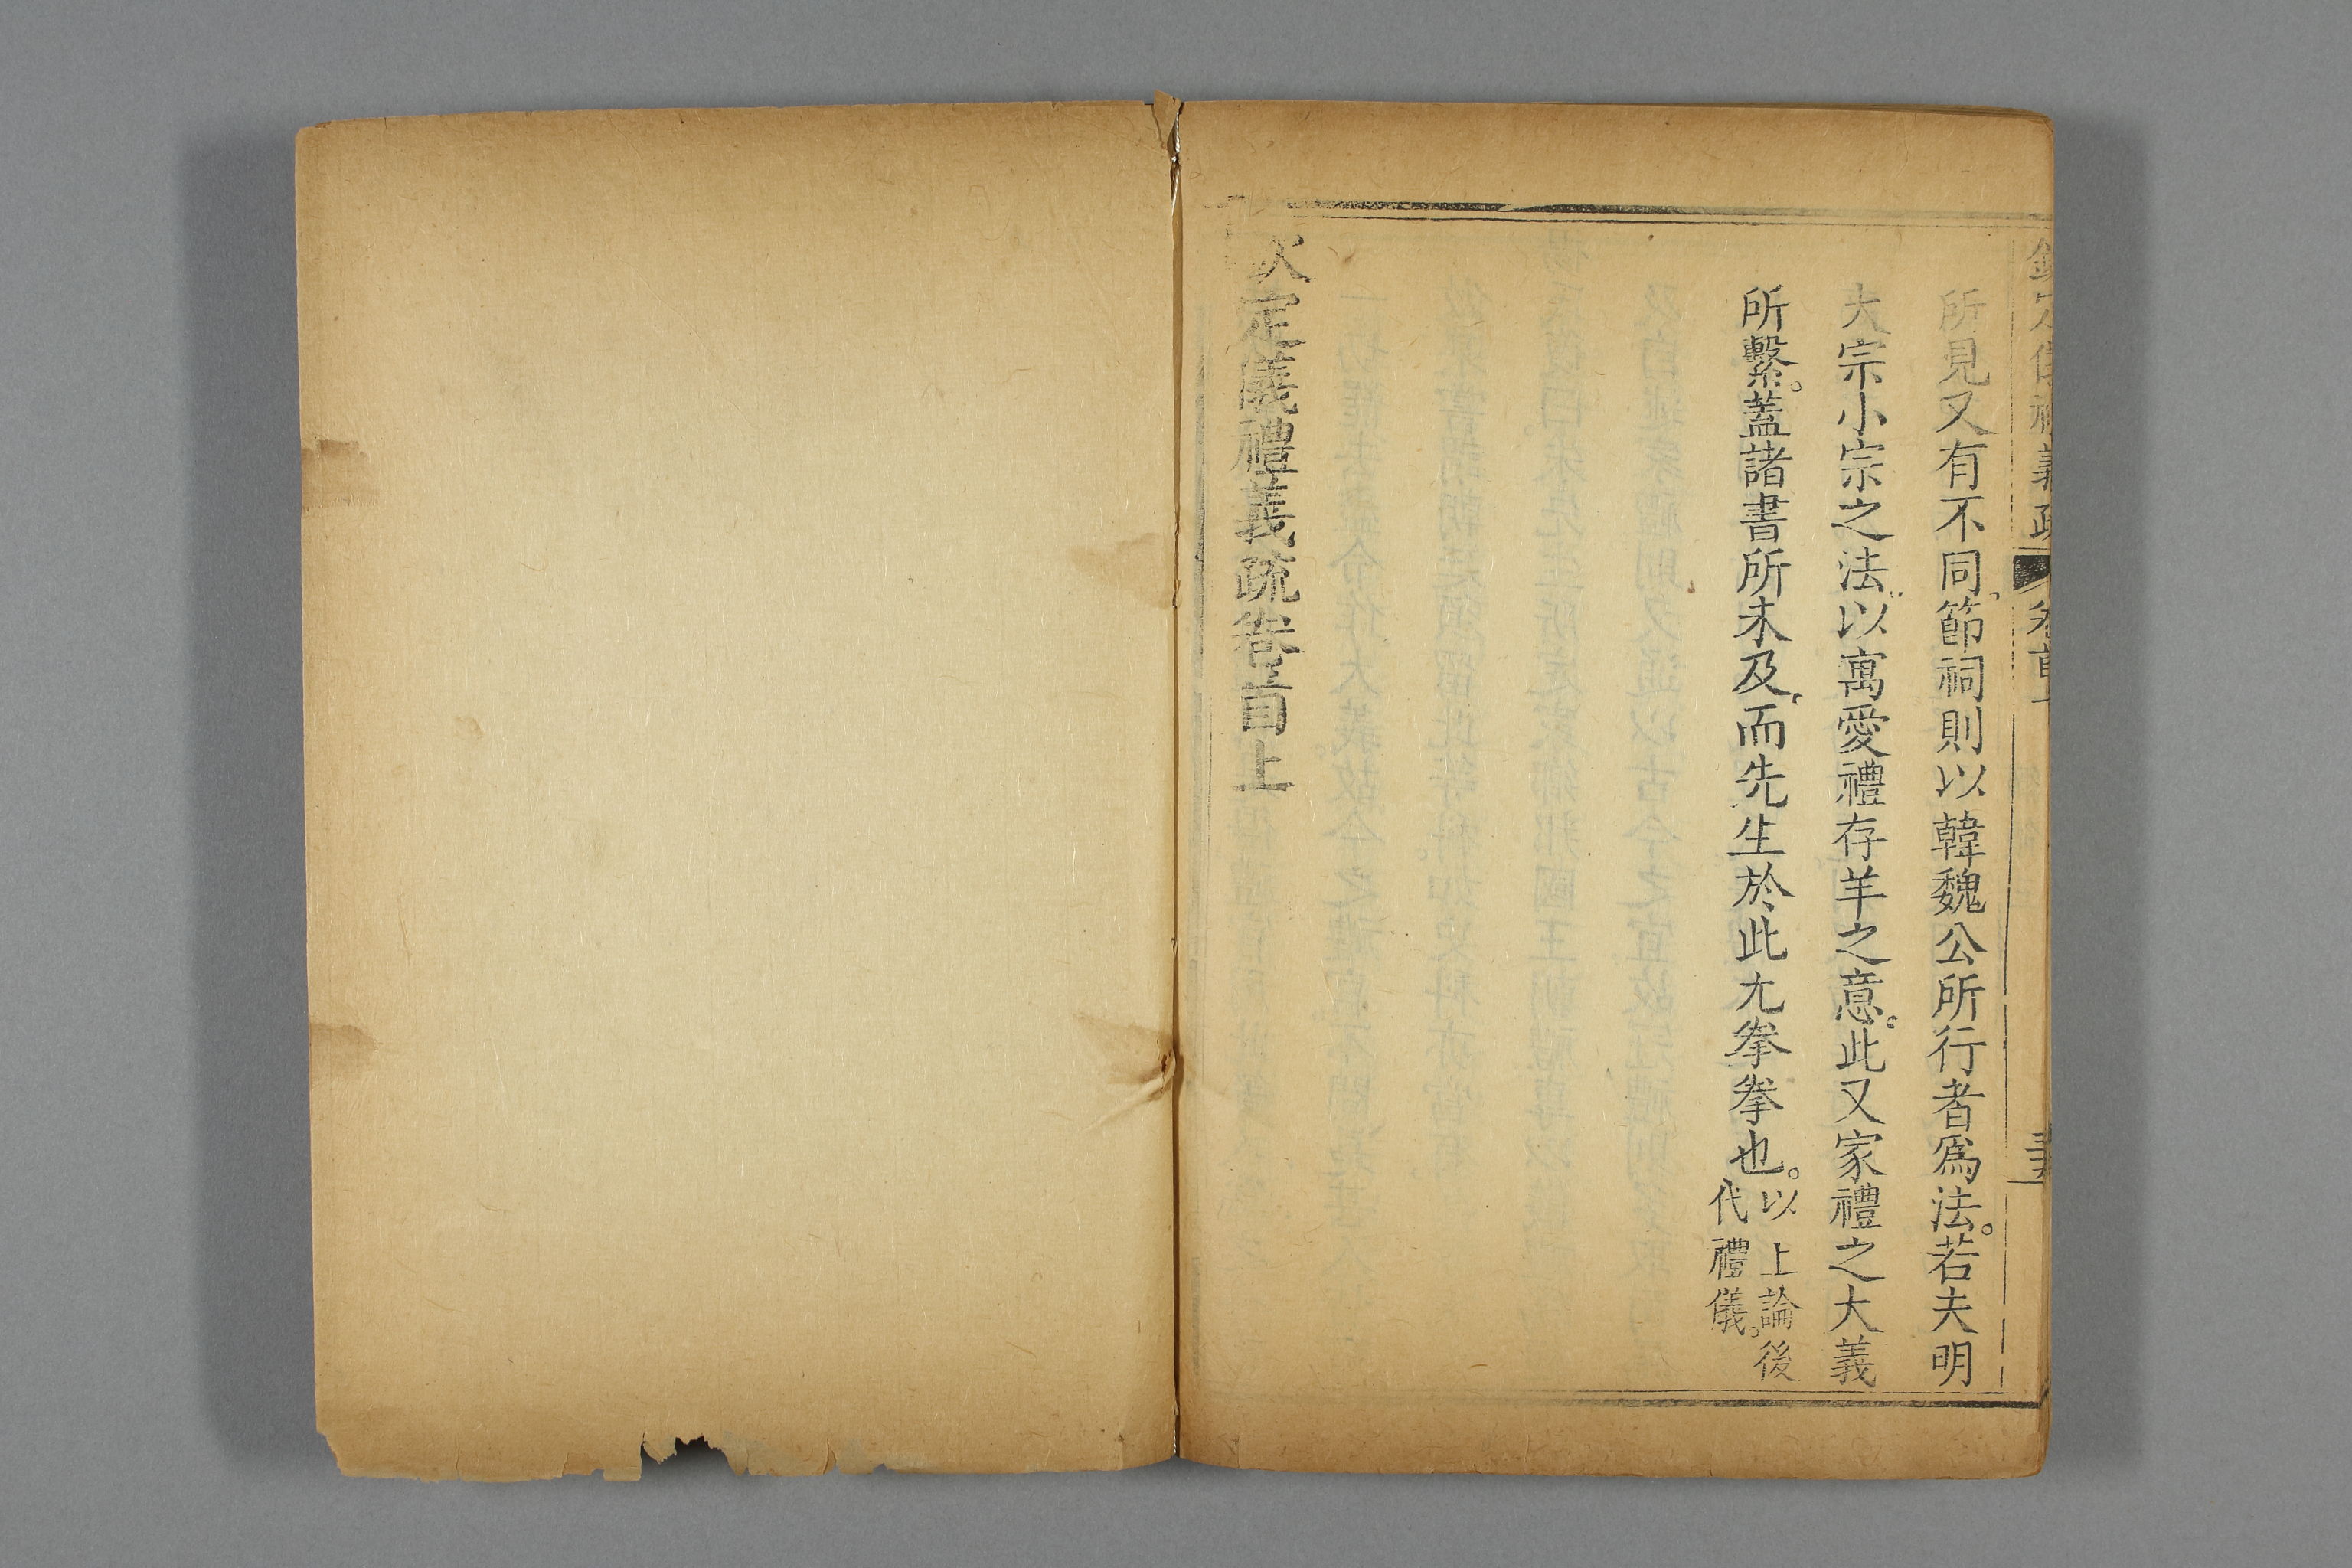 所見又有不同節祠則以韓魏公所行者爲法。若夫明
大宗小宗之法以寓愛禮存羊之意。此又家禮之大義
所繫。蓋諸書所未及而先生於此尤拳拳也。以上論後
代禮儀。
定儀禮義疏卷首上